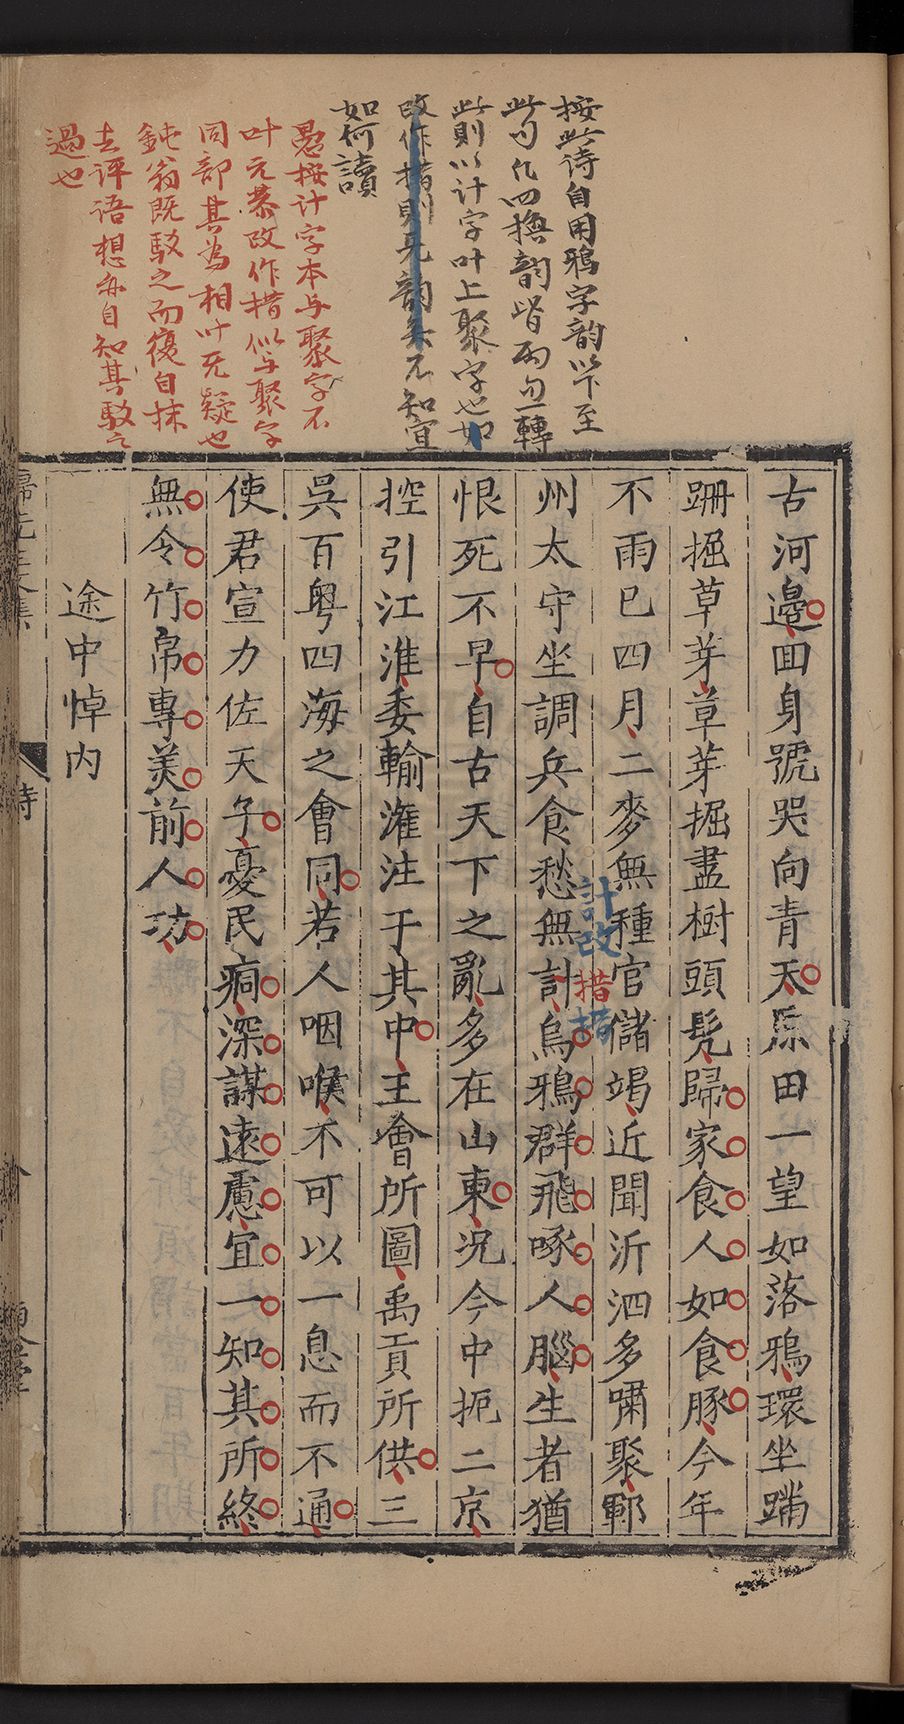 按此诗自用鴉字韵以下至
此句凡四換韵皆两句一轉
此則以计字叶上聚字也如
改作措則无韵矣不知宣
如何讀
愚按计字本与聚字不
叶元恭改作措似与聚字
同部其為相叶无疑也
鈍翁既駁之而復自抹
去评语想亦自知其駁之
過也
古河邉囬身號哭向青天原田一望如落鴉環坐蹣
跚掘草芽草芽掘盡樹頭髡歸家食人如食豚今年
不雨已四月二麥無種官儲竭近聞沂泗多嘯聚鄆
計改
措
措
州太守坐調兵食愁無計烏鴉群飛啄人腦生者猶
恨死不早自古天下之亂多在山東況今中扼二京
控引江淮委輸灌注于其中王會所圖禹貢所供三
吳百粤四海之會同若人咽喉不可以一息而不通
使君宣力佐天子憂民痌深謀遠慮宜一知其所終
無令竹帛專美前人功
途中悼内
詩